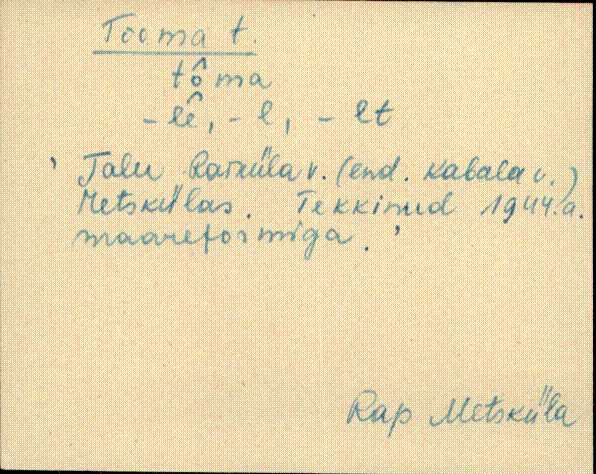 Tooma t.
tô̭ma
- lê, - l, - lt
' Talu Raiküla v. (end. Kabala v.)
Metskülas. Tekkinud 1944. a.
maareformiga. '
Rap Metsküla